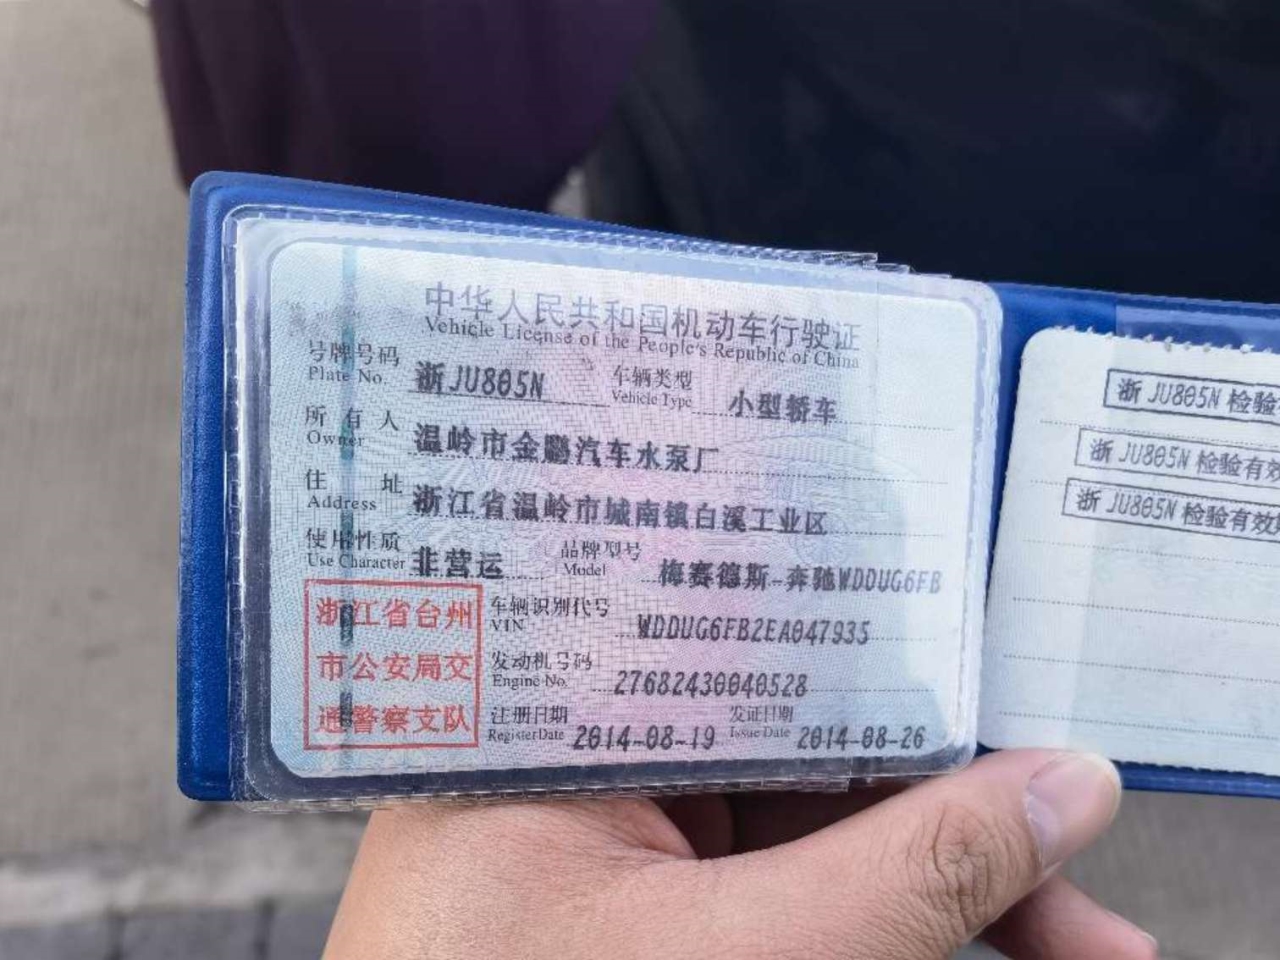 中华人民共和国机动车行驶证
Vehicle License of the People's Republic of China
号牌号码 浙JU805N 车辆类型 小型轿车
Plate No. Vehicle Type
所有人 温岭市金鹏汽车水泵厂
Owner
住址 浙江省温岭市城南镇白溪工业区
Address
使用性质 非营运 品牌型号 梅赛德斯-奔驰WDDUG6FB
Use Character Model
浙江省台州
市公安局交
通警察支队
车辆识别代号 WDDUG6FB2EA047935
VIN
发动机号码 27682430040528
Engine No.
注册日期 2014-08-19 发证日期 2014-08-26
Register Date Issue Date
浙JU805N检验
浙JU805N检验有效
浙JU805N检验有效